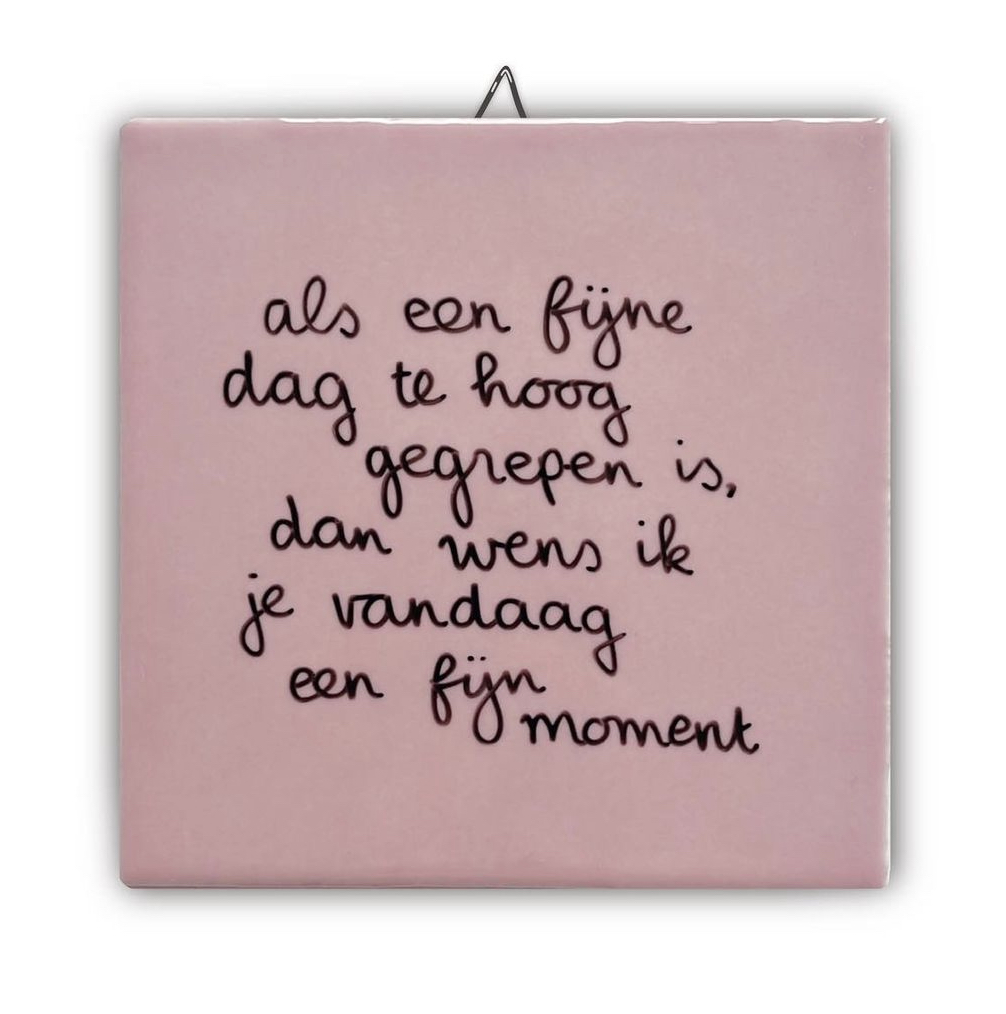 als een fijne
dag te hoog
gegrepen is,
dan wens ik
je vandaag
een fijn
moment